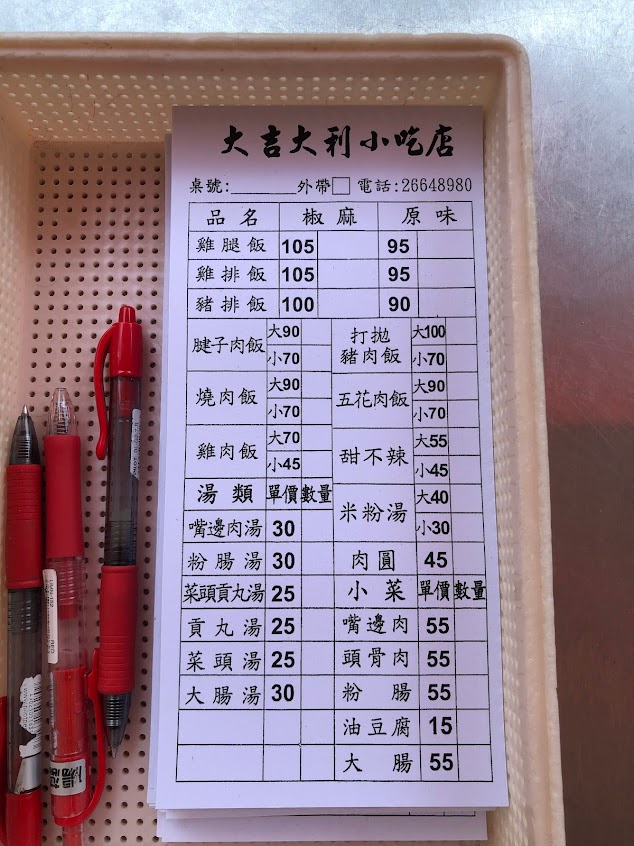 大吉大利小吃店
桌號:______外帶□ 電話:26648980
品名 椒麻 原味
雞腿飯 105 95
雞排飯 105 95
豬排飯 100 90
腱子肉飯 大90 小70
打拋豬肉飯 大100 小70
燒肉飯 大90 小70
五花肉飯 大90 小70
雞肉飯 大70 小45
甜不辣 大55 小45
湯類 單價 數量
米粉湯 大40 小30
嘴邊肉湯 30
粉腸湯 30 肉圓 45
菜頭貢丸湯 25 小菜 單價 數量
貢丸湯 25 嘴邊肉 55
菜頭湯 25 頭骨肉 55
大腸湯 30 粉腸 55
油豆腐 15
大腸 55